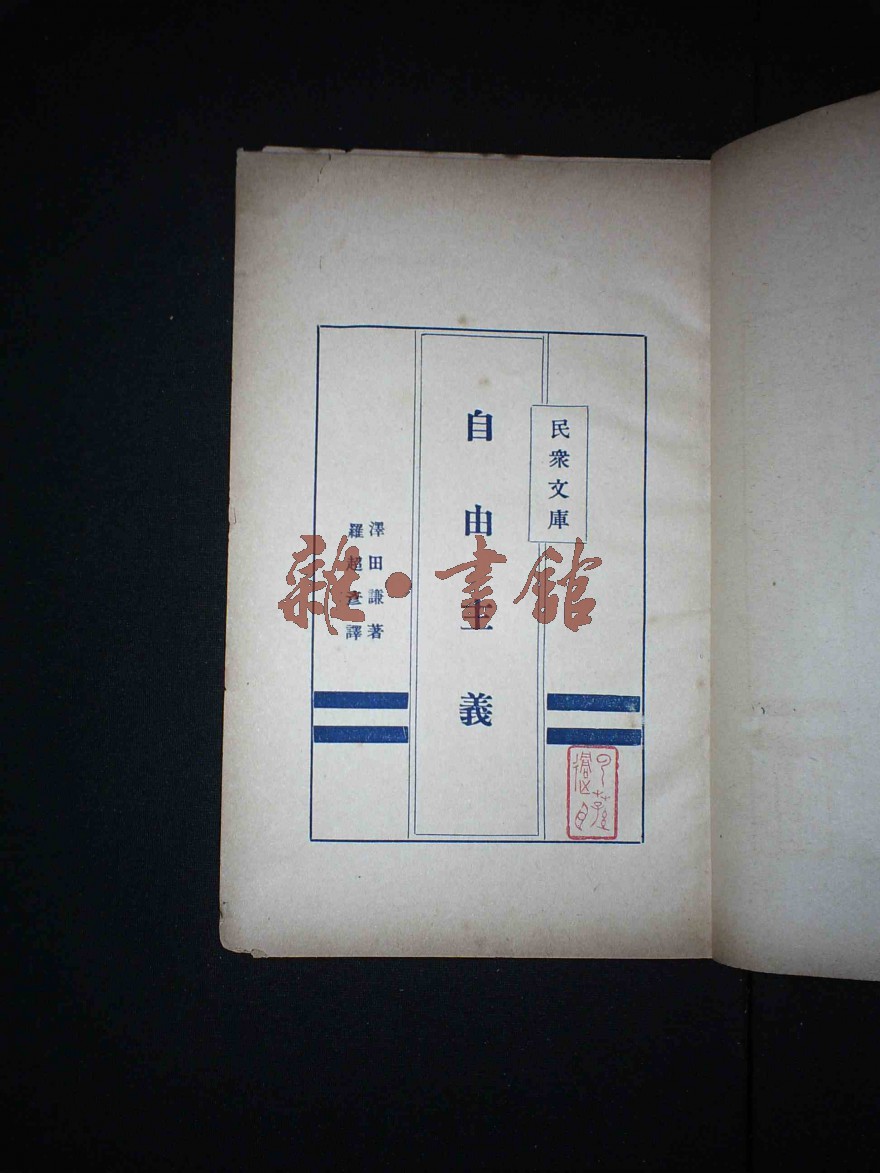 民衆文庫
自由主義
澤田謙著
羅超彥譯
雜·書館